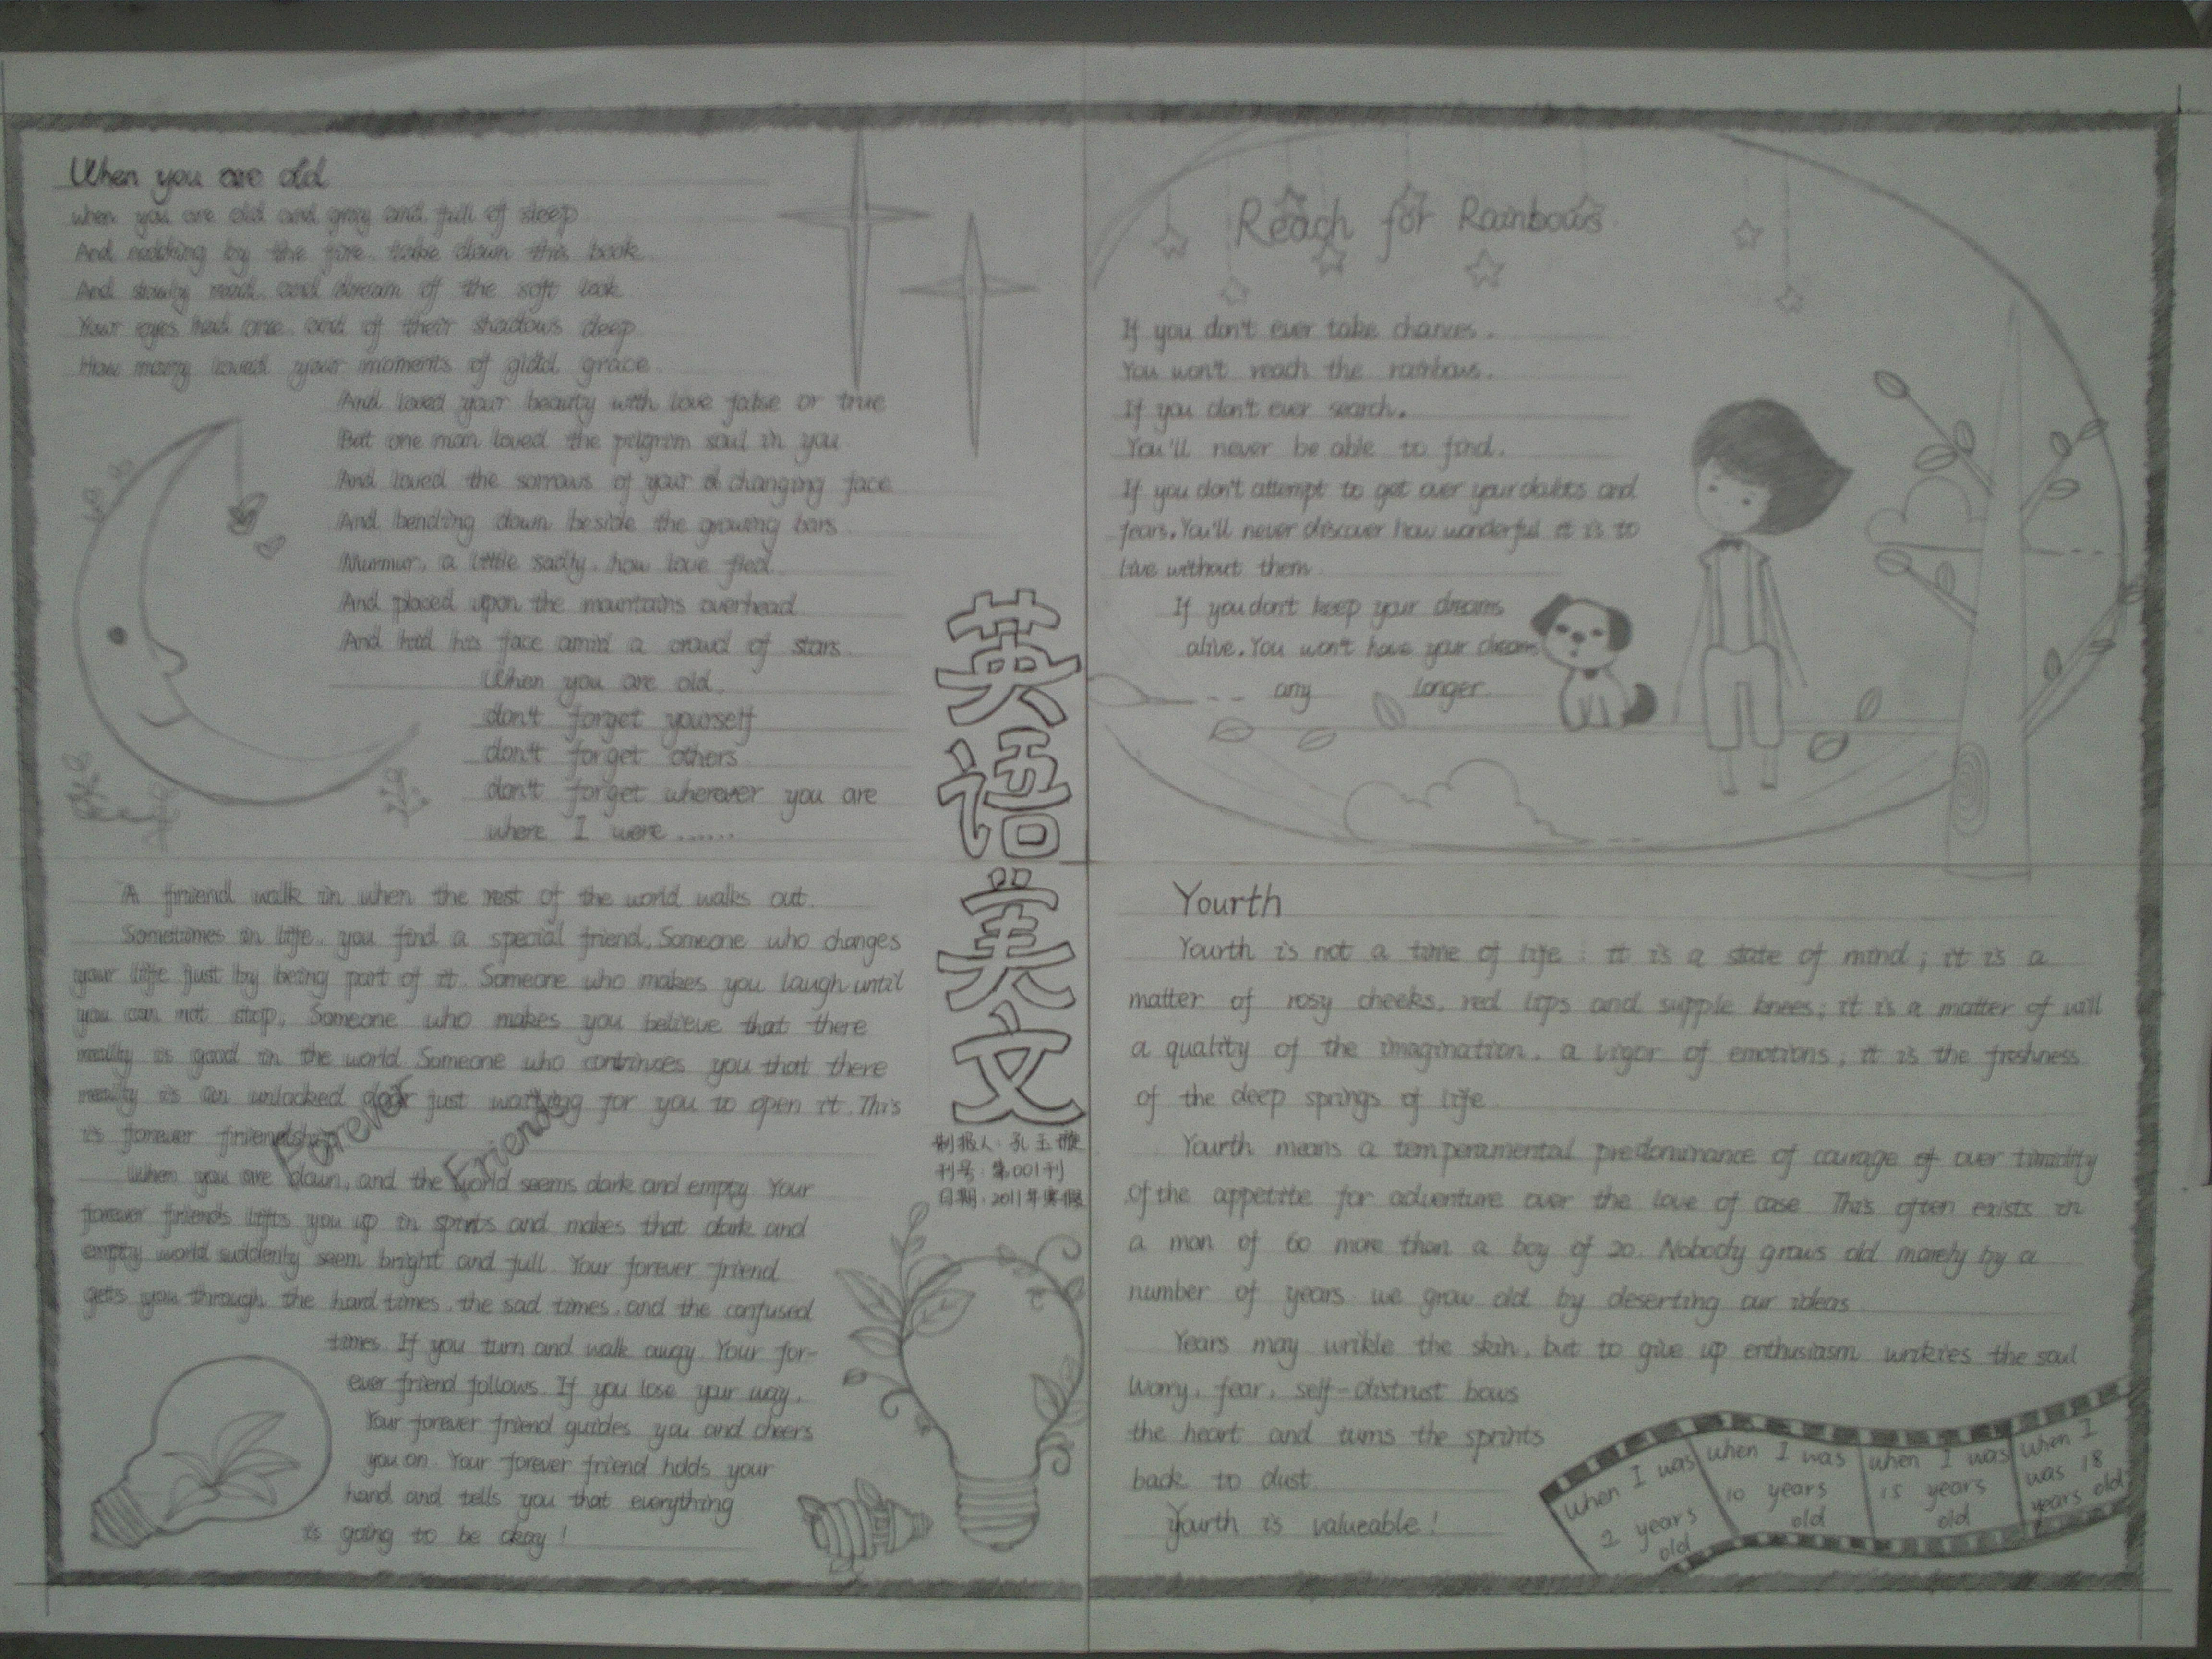 When you are old
when you are old and gray and full of sleep
And nodding by the fire. take down this book
And slowly read. and dream of the soft look
Your eyes had once. and of their shadows deep
How many loved your moments of glad grace.
And loved your beauty with love false or true
But one man loved the pilgrim soul in you
And loved the sorrows of your changing face
And bending down beside the growing bars
Murmur, a little sadly. how love fled
And placed upon the mountains overhead
And hid his face amid a crowd of stars.
When you are old.
don't forget yourself
don't forget others
don't forget wherever you are
where I were ......
Reach for Rainbows
If you don't ever take chances.
You won't reach the rainbows.
If you don't ever search.
You'll never be able to find.
If you don't attempt to get over your doubts and
fears. You'll never discover how wonderful it is to
live without them
If you don't keep your dreams
alive. You won't have your dreams
any longer
英语美文
制报人: 孔玉
刊号: 第001刊
日期: 2011年寒假
A friend walk in when the rest of the world walks out.
Sometimes in life. you find a special friend. Someone who changes
your life just by being part of it. Someone who makes you laugh until
you can not stop. Someone who makes you believe that there
really is good in the world. Someone who continces you that there
really is an unlocked door just waiting for you to open it. This
is forever friendship
Forever Friends
When you are down, and the world seems dark and empty. Your
forever friends lifts you up in spirits and makes that dark and
empty world suddenly seem bright and full. Your forever friend
gets you through the hard times. the sad times. and the confused
times. If you turn and walk away. Your for-
ever friend follows. If you lose your way.
Your forever friend guides you and cheers
you on. Your forever friend holds your
hand and tells you that everything
is going to be okay!
Yourth
Yourth is not a time of life; it is a state of mind; it is a
matter of rosy cheeks. red lips and supple knees; it is a matter of will
a quality of the imagination. a vigor of emotions; it is the freshness
of the deep springs of life
Yourth means a temperamental predominance of courage of over timidity
of the appetite for adventure over the love of ease. This often exists in
a man of 60 more than a boy of 20. Nobody grows old merely by a
number of years. we grow old by deserting our ideas
Years may wrikle the skin. but to give up enthusiasm wrikles the soul
Worry. fear. self-distrust bows
the heart and turns the sprints
back to dust.
Yourth is valueable!
when I was
2 years
old
when I was
10 years
old
when I was
15 years
old
when I
was 18
years old